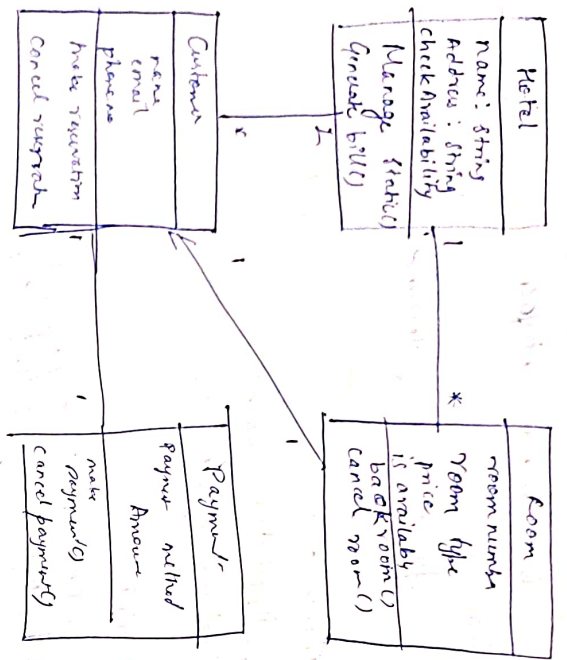 Hotel
name: String
Address: String
check Availability
Manage Static()
Generate bill()
1
*
1
*
Room
room number
room type
price
is availably
back room()
cancel room()
Customer
name
email
phone no
make reservation
Cancel
1
1
1
1
Payment
Payment method
Amount
make
payment()
cancel payment()